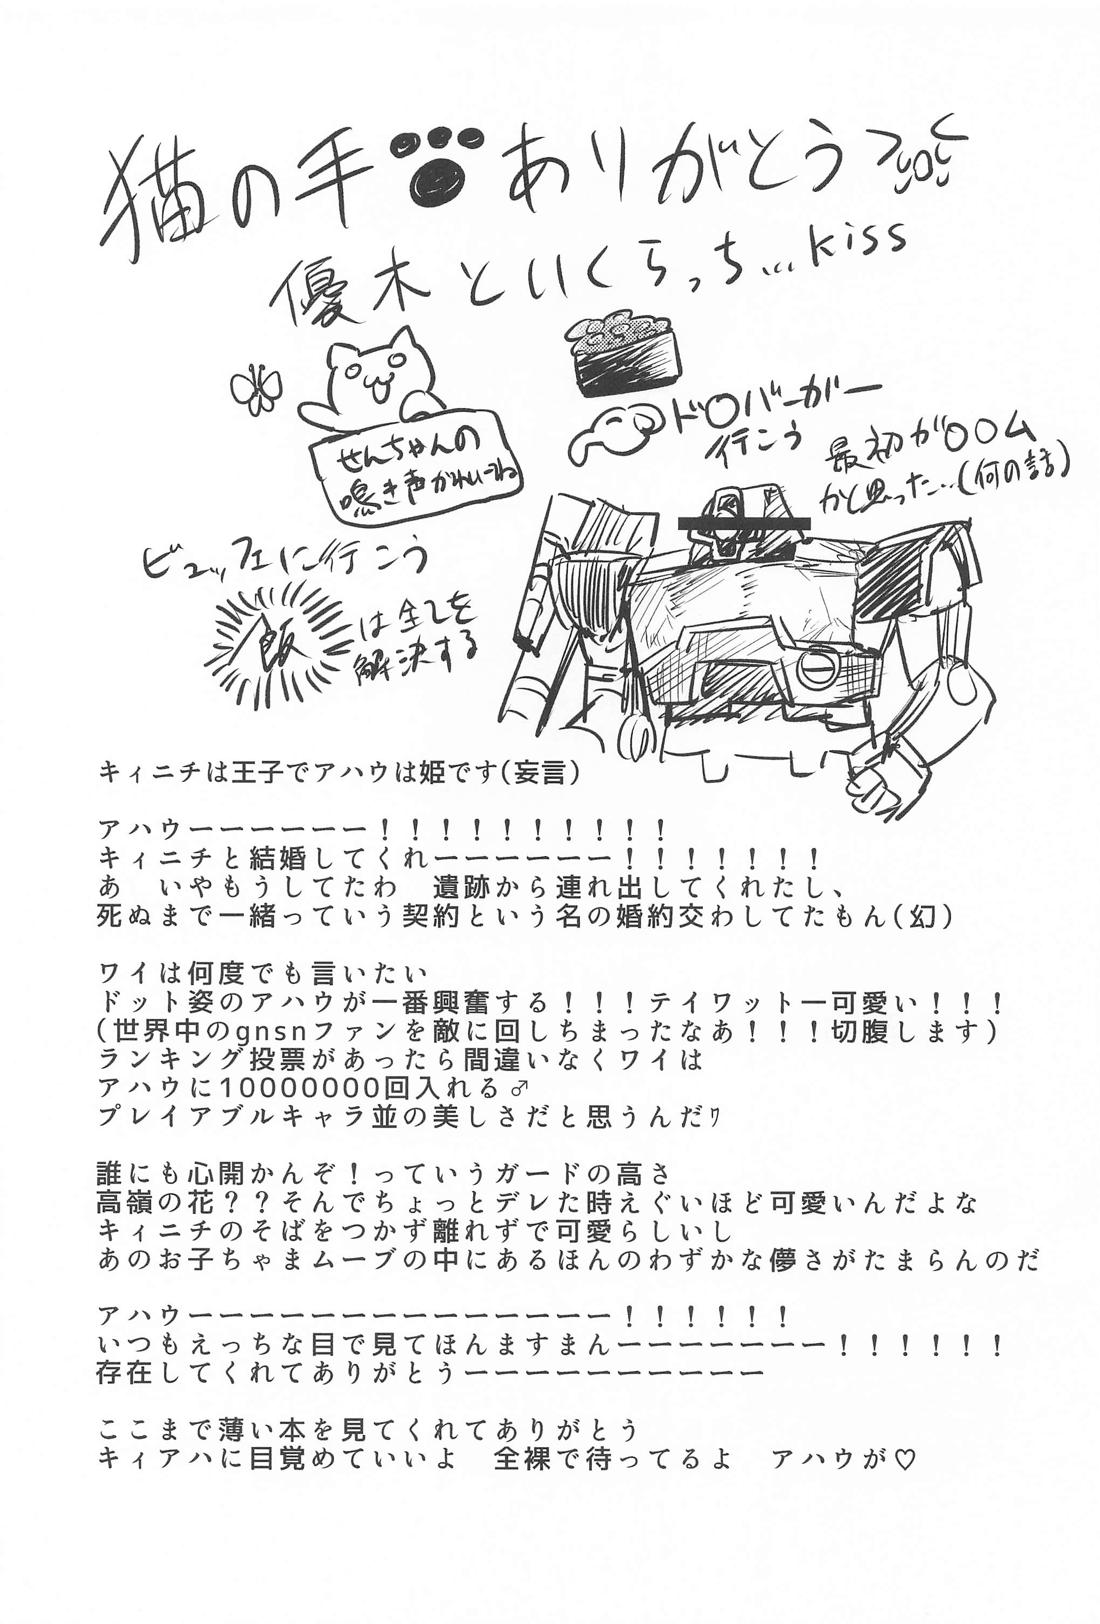 猫の手ありがとう
優木といくらっち…kiss
せんちゃんの
鳴き声かわいーね
ド〇バーガー
行こう
最初が〇〇ム
かと思った…(何の話)
ビュッフェに行こう
飯は全てを
解決する
キィニチは王子でアハウは姫です(妄言)
アハウーーーーーー！！！！！！！！！！
キィニチと結婚してくれーーーーーー！！！！！！！
あ　いやもうしてたわ　遺跡から連れ出してくれたし、
死ぬまで一緒っていう契約という名の婚約交わしてたもん(幻)
ワイは何度でも言いたい
ドット姿のアハウが一番興奮する！！！テイワット一可愛い！！！
(世界中のgnsnファンを敵に回しちまったなあ！！！切腹します)
ランキング投票があったら間違いなくワイは
アハウに10000000回入れる♂
プレイアブルキャラ並の美しさだと思うんだﾜ
誰にも心開かんぞ！っていうガードの高さ
高嶺の花？？そんでちょっとデレた時えぐいほど可愛いんだよな
キィニチのそばをつかず離れずで可愛らしいし
あのお子ちゃまムーブの中にあるほんのわずかな儚さがたまらんのだ
アハウーーーーーーーーーーーーーー！！！！！！
いつもえっちな目で見てほんますまんーーーーーーー！！！！！！
存在してくれてありがとうーーーーーーーーーー
ここまで薄い本を見てくれてありがとう
キィアハに目覚めていいよ　全裸で待ってるよ　アハウが♡